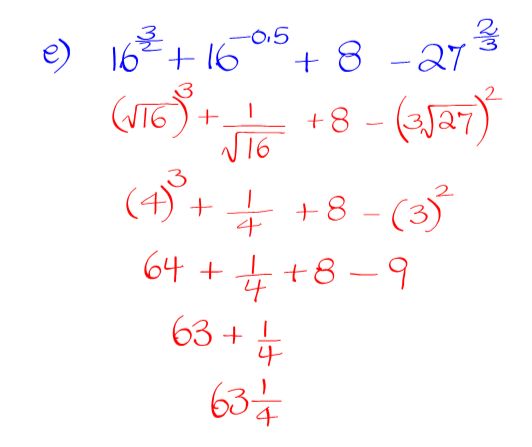 e) 16^(3/2) + 16^(-0.5) + 8 - 27^(2/3)
(√16)^3 + 1/√16 + 8 - (3√27)^2
(4)^3 + 1/4 + 8 - (3)^2
64 + 1/4 + 8 - 9
63 + 1/4
63 1/4